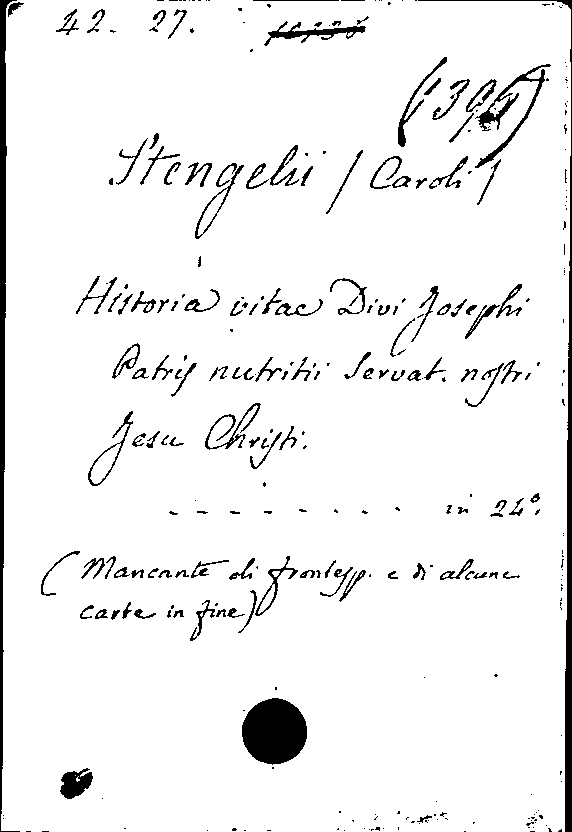 42. 27.
Stengelii / Caroli /
Historia vitae Divi Josephi
Patris nutritii Servat. nostri
Jesu Christi.
- - - - - - - - - in 24°.
(Mancante di frontesp. e di alcune
carte in fine)